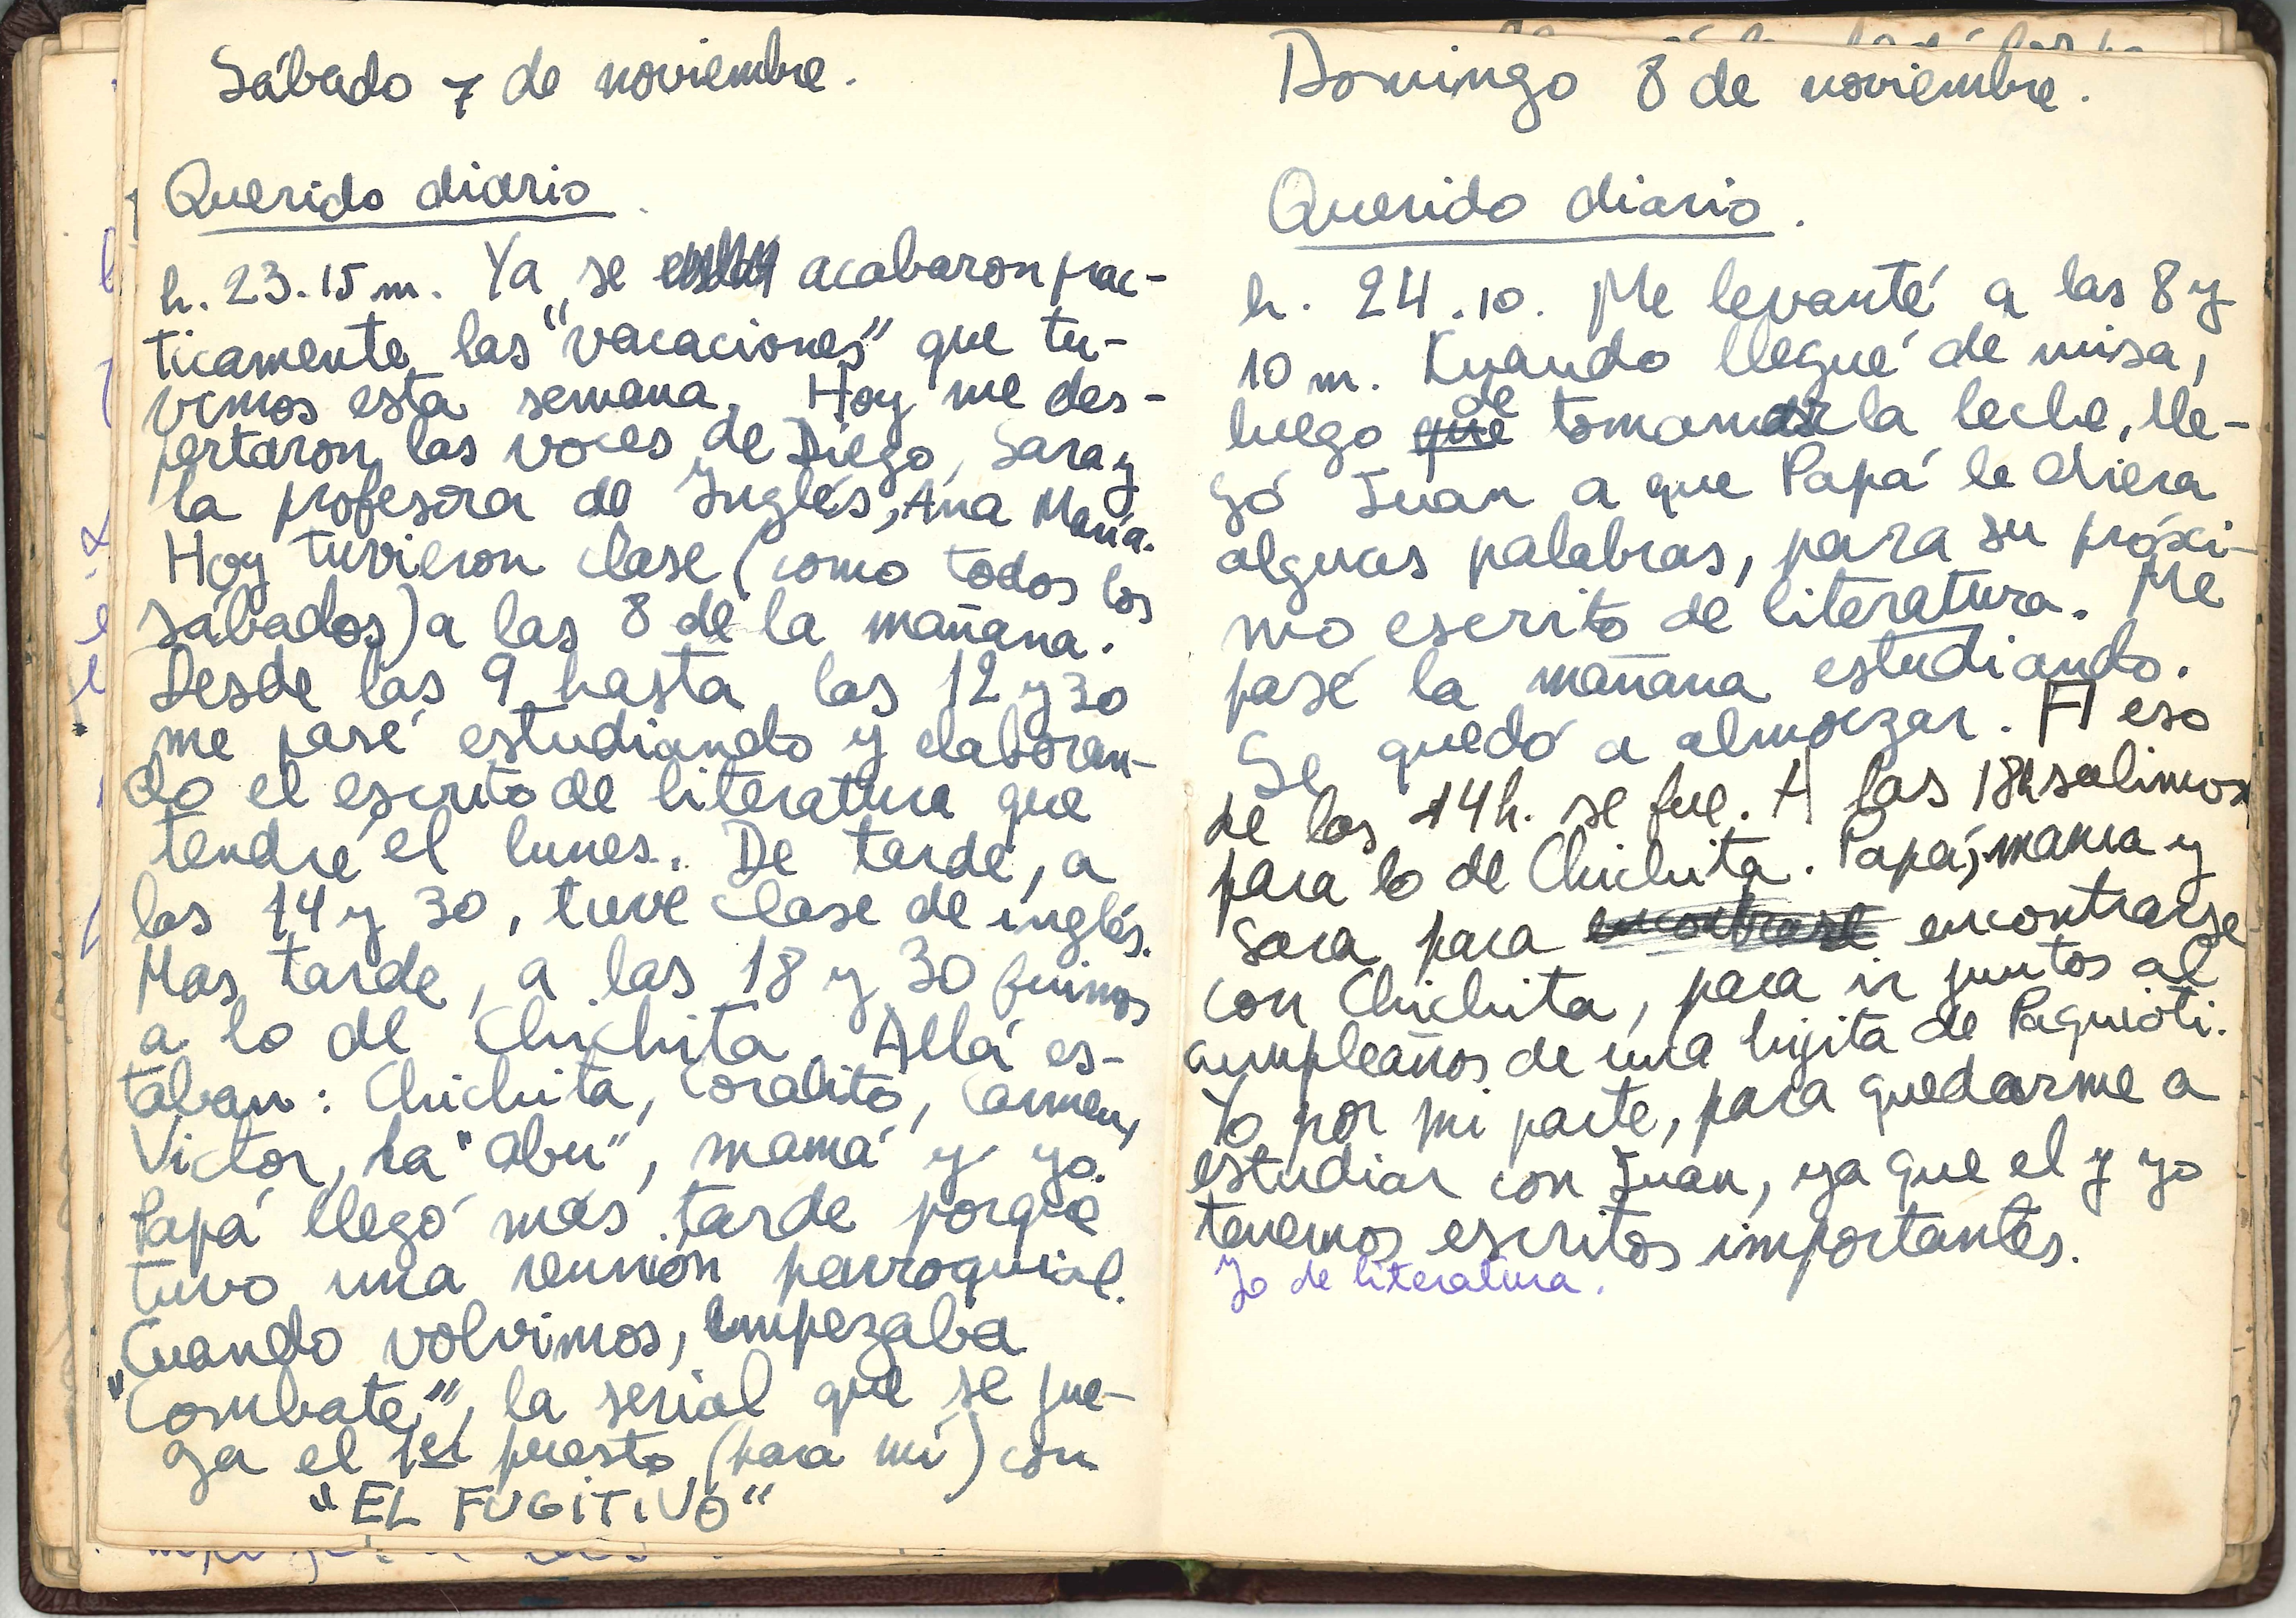 Sábado 7 de noviembre.
Querido diario.
h. 23.15 m. Ya se acabaron prac-
ticamente las "vacaciones" que tu-
vimos esta semana. Hoy me des-
pertaron las voces de Diego, Sara y
la profesora de Inglés, Ana María.
Hoy tuvieron clase (como todos los
sábados) a las 8 de la mañana.
Desde las 9 hasta las 12 y 30
me pasé estudiando y elaboran-
do el escrito de literatura que
tendré el lunes. De tarde, a
las 14 y 30, tuve clase de inglés.
Mas tarde, a las 18 y 30 fuimos
a lo de Chichita. Allá es-
taban: Chichita, Coralito, Carmen,
Victor, la "abu", mamá y yo.
Papá llegó más tarde porque
tuvo una reunión parroquial.
Cuando volvimos, empezaba
"Combate", la serial que se jue-
ga el 1er puesto (para mí) con
"EL FUGITIVO"
Domingo 8 de noviembre.
Querido diario.
h. 24.10. Me levanté a las 8 y
10 m. Cuando llegué de misa,
luego que de tomar la leche, lle-
gó Juan a que Papá le diera
algunas palabras, para su próxi-
mo escrito de literatura. Me
pasé la mañana estudiando.
Se quedó a almorzar. A eso
de las 14h. se fue. A las 18h salimos
para lo de Chichita. Papá, mama y
Sara para encontrarse encontrarse
con Chichita, para ir juntos al
cumpleaños de una hijita de Paquioti.
Yo por mi parte, para quedarme a
estudiar con Juan, ya que el y yo
tenemos escritos importantes.
Yo de literatura.